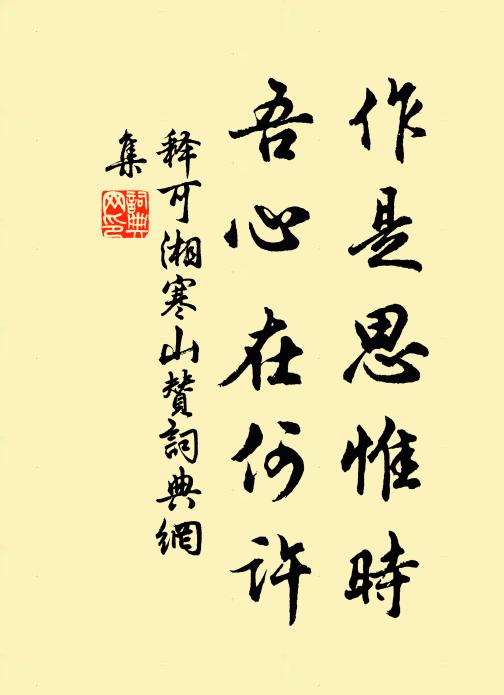 作是思惟時
吾心在何許
释可湘寒山赞詞典網
集
詞典网印